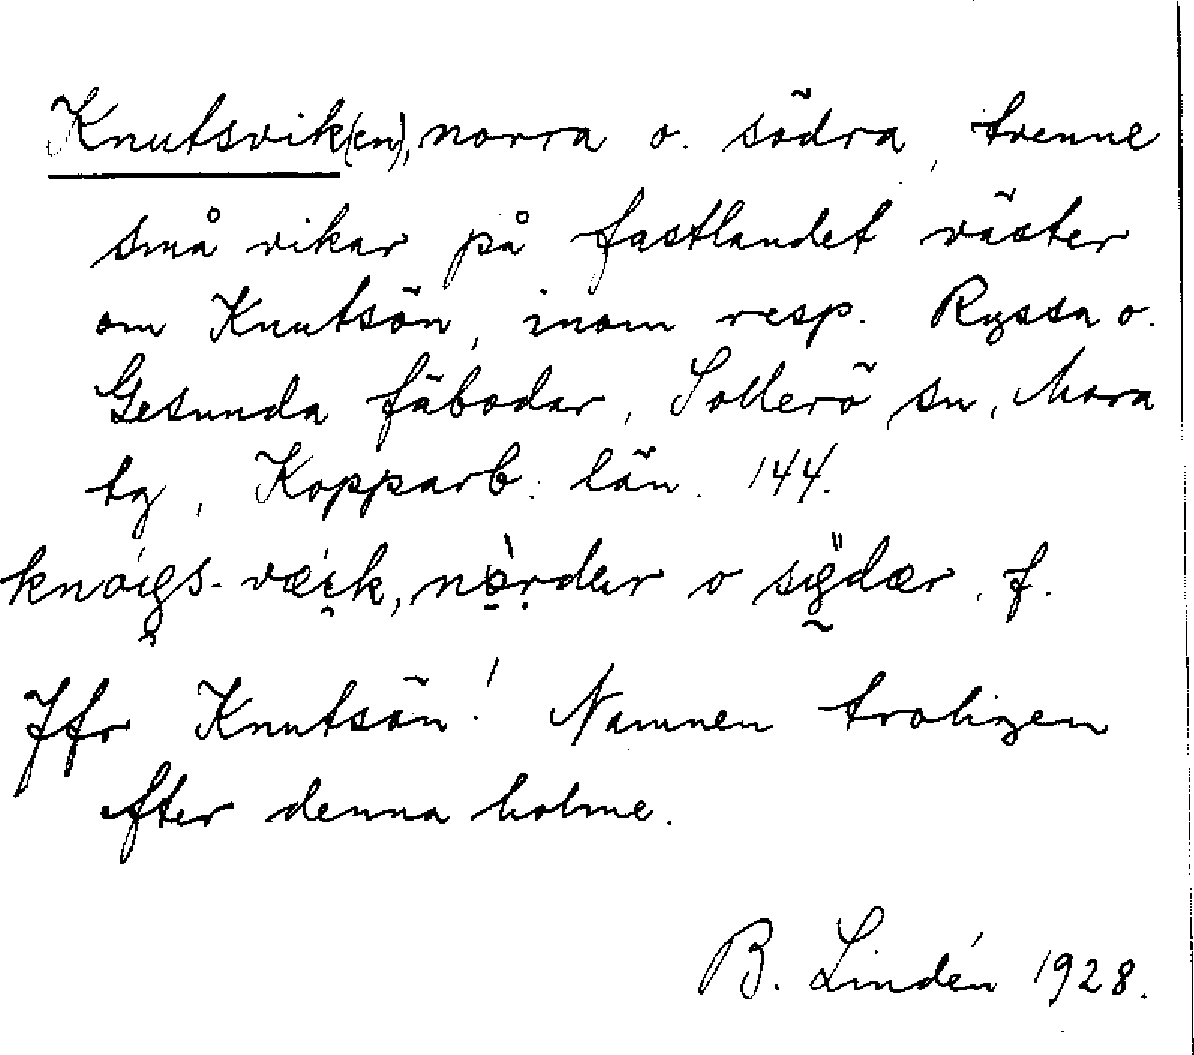 Knutsvik(en), norra o. södra, tvenne
små vikar på fastlandet väster
om Knutsön, inom resp. Ryssa o.
Gesunda fäbodar, Sollerö sn, Mora
tg, Kopparb. län. 144.
o , f.
Jfr Knutsön! Namnen troligen
efter denna holme.
B. Lindén 1928.